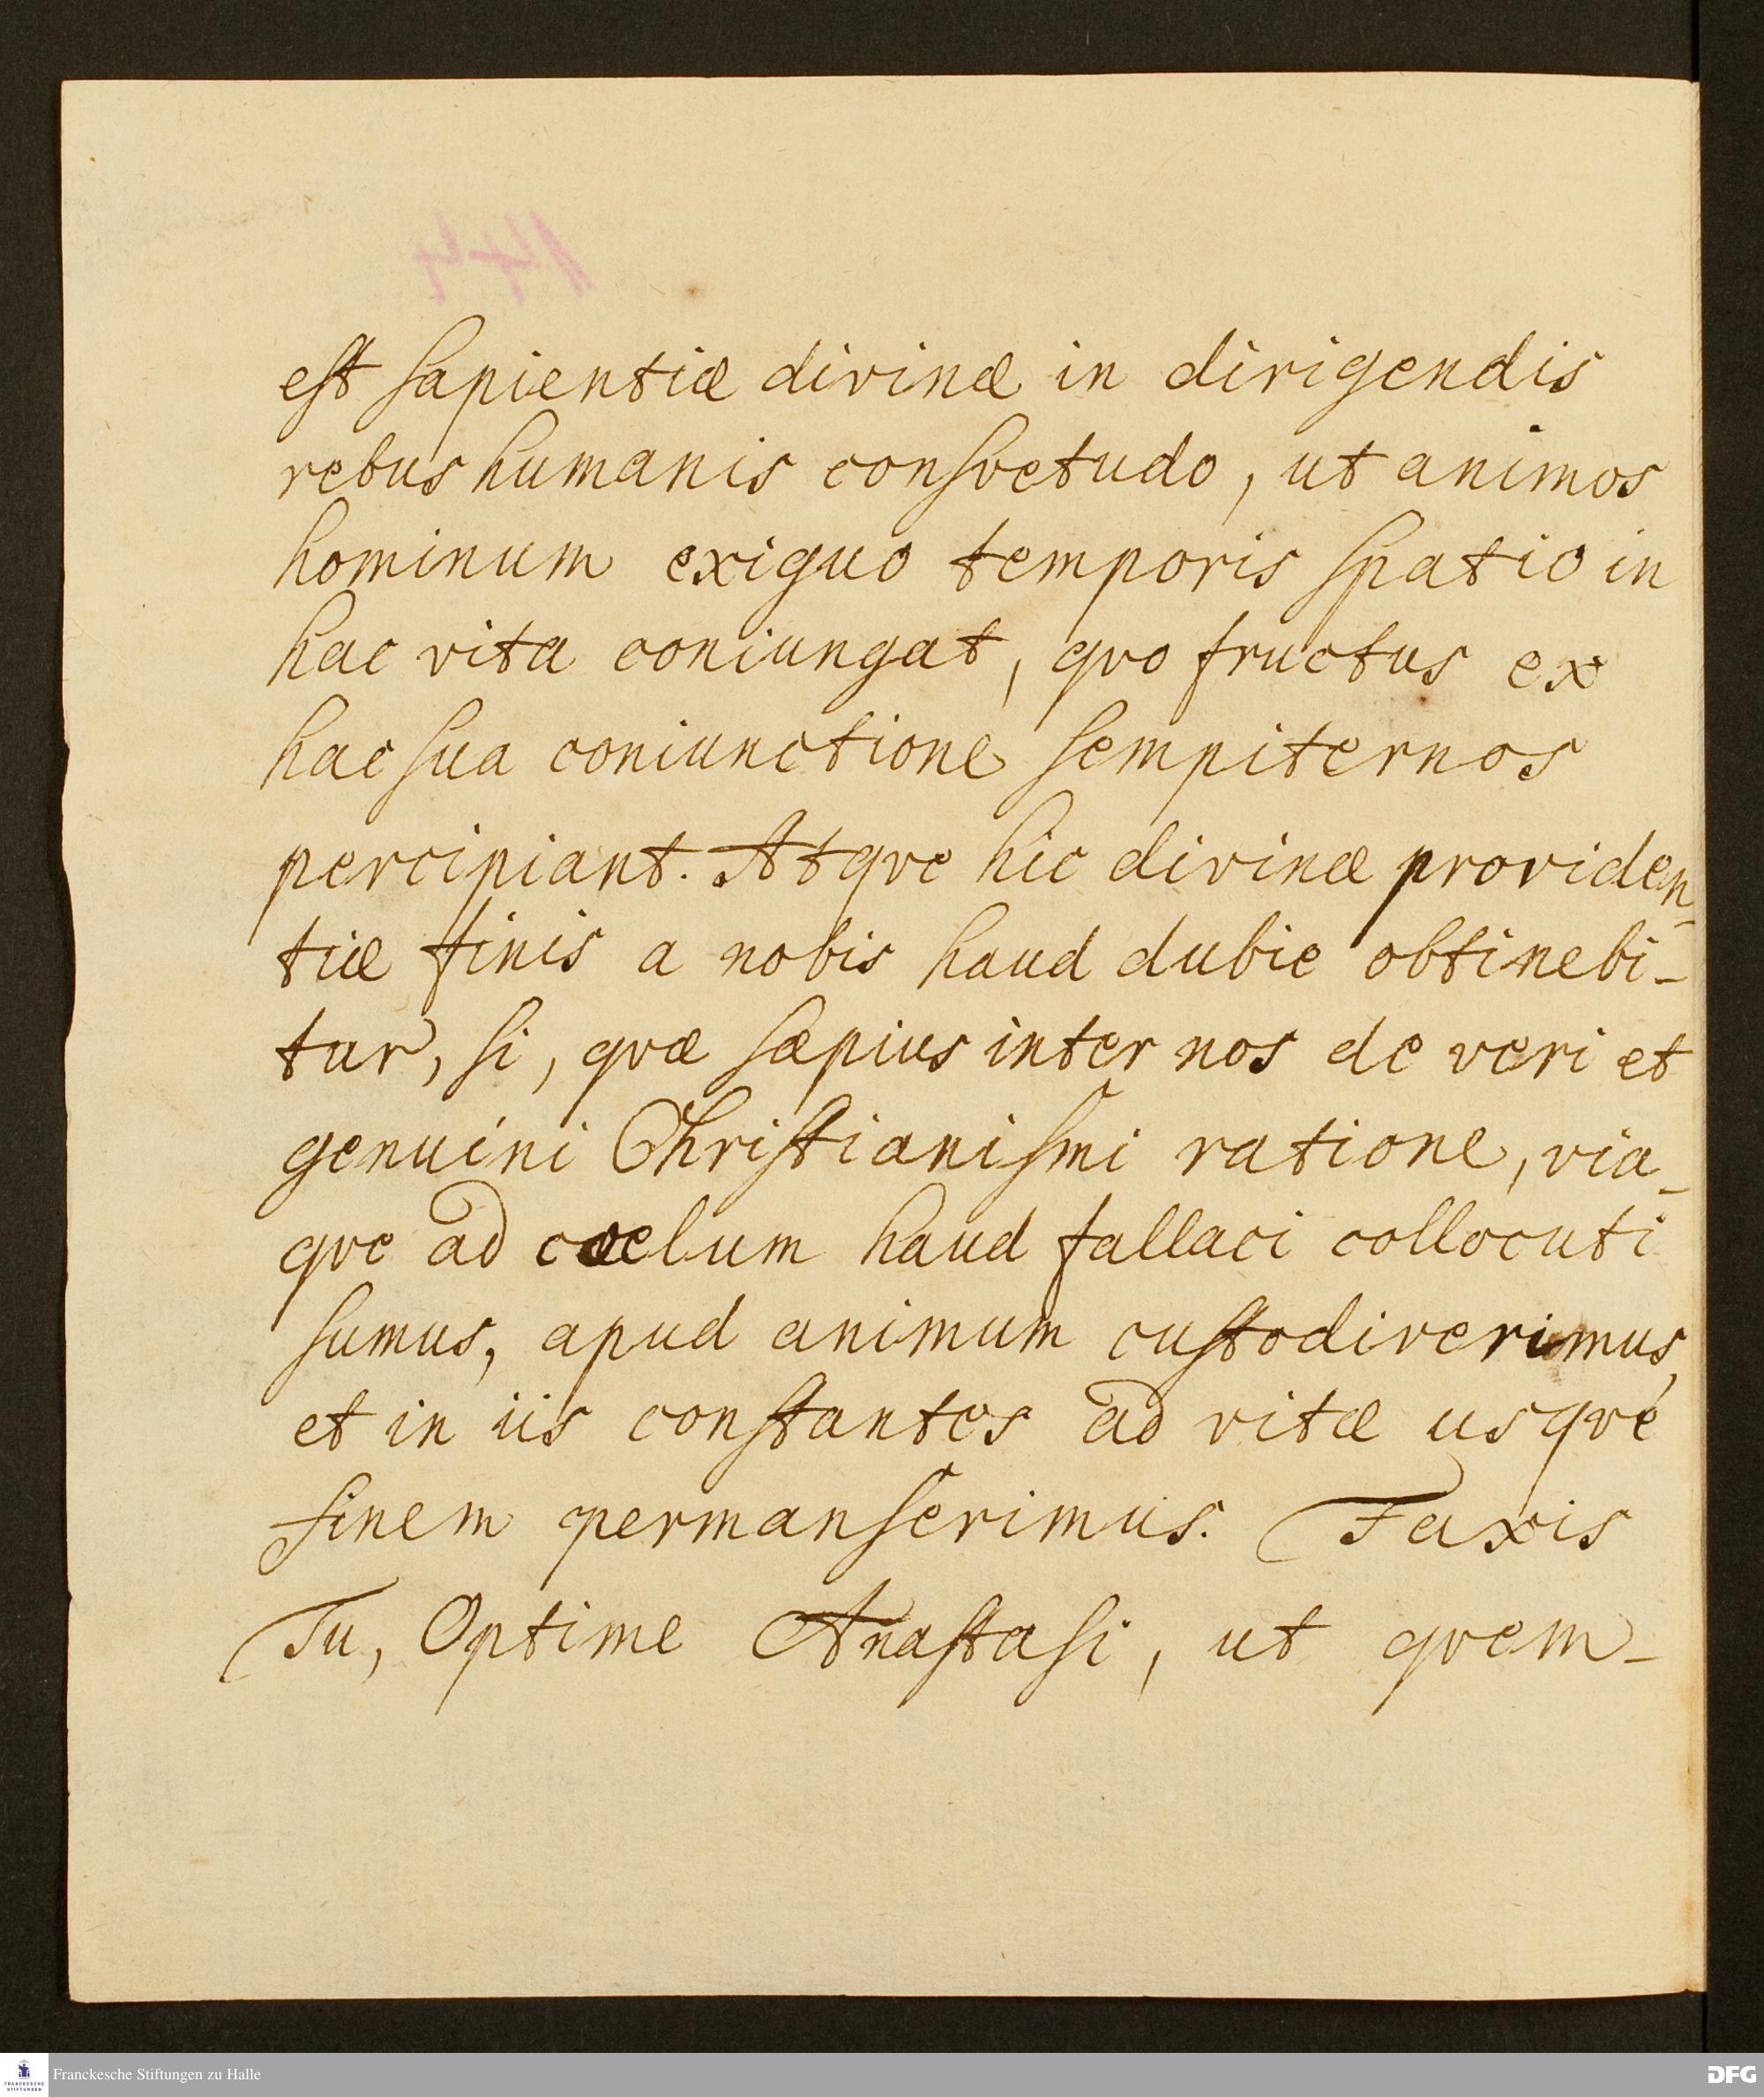 est sapientiæ divinæ in dirigendis
rebus humanis consvetudo, ut animos
hominum exiguo temporis spatio in
hac vita coniungat, qvo fructus ex
hac sua coniunctione sempiternos
percipiant. Atqve hic divinæ providen-
tiæ finis a nobis haud dubie obtinebi-
tur, si, qvæ sæpius inter nos de veri et
genuini Christianismi ratione, via-
qve ad coelum haud fallaci collocuti
sumus, apud animum custodiverimus,
et in iis constantes ad vitæ usqve
finem permanserimus. Faxis
Tu, Optime Anastasi, ut qvem-
Franckesche Stiftungen zu Halle
FRANCKESCHE
STIFTUNGEN
DFG